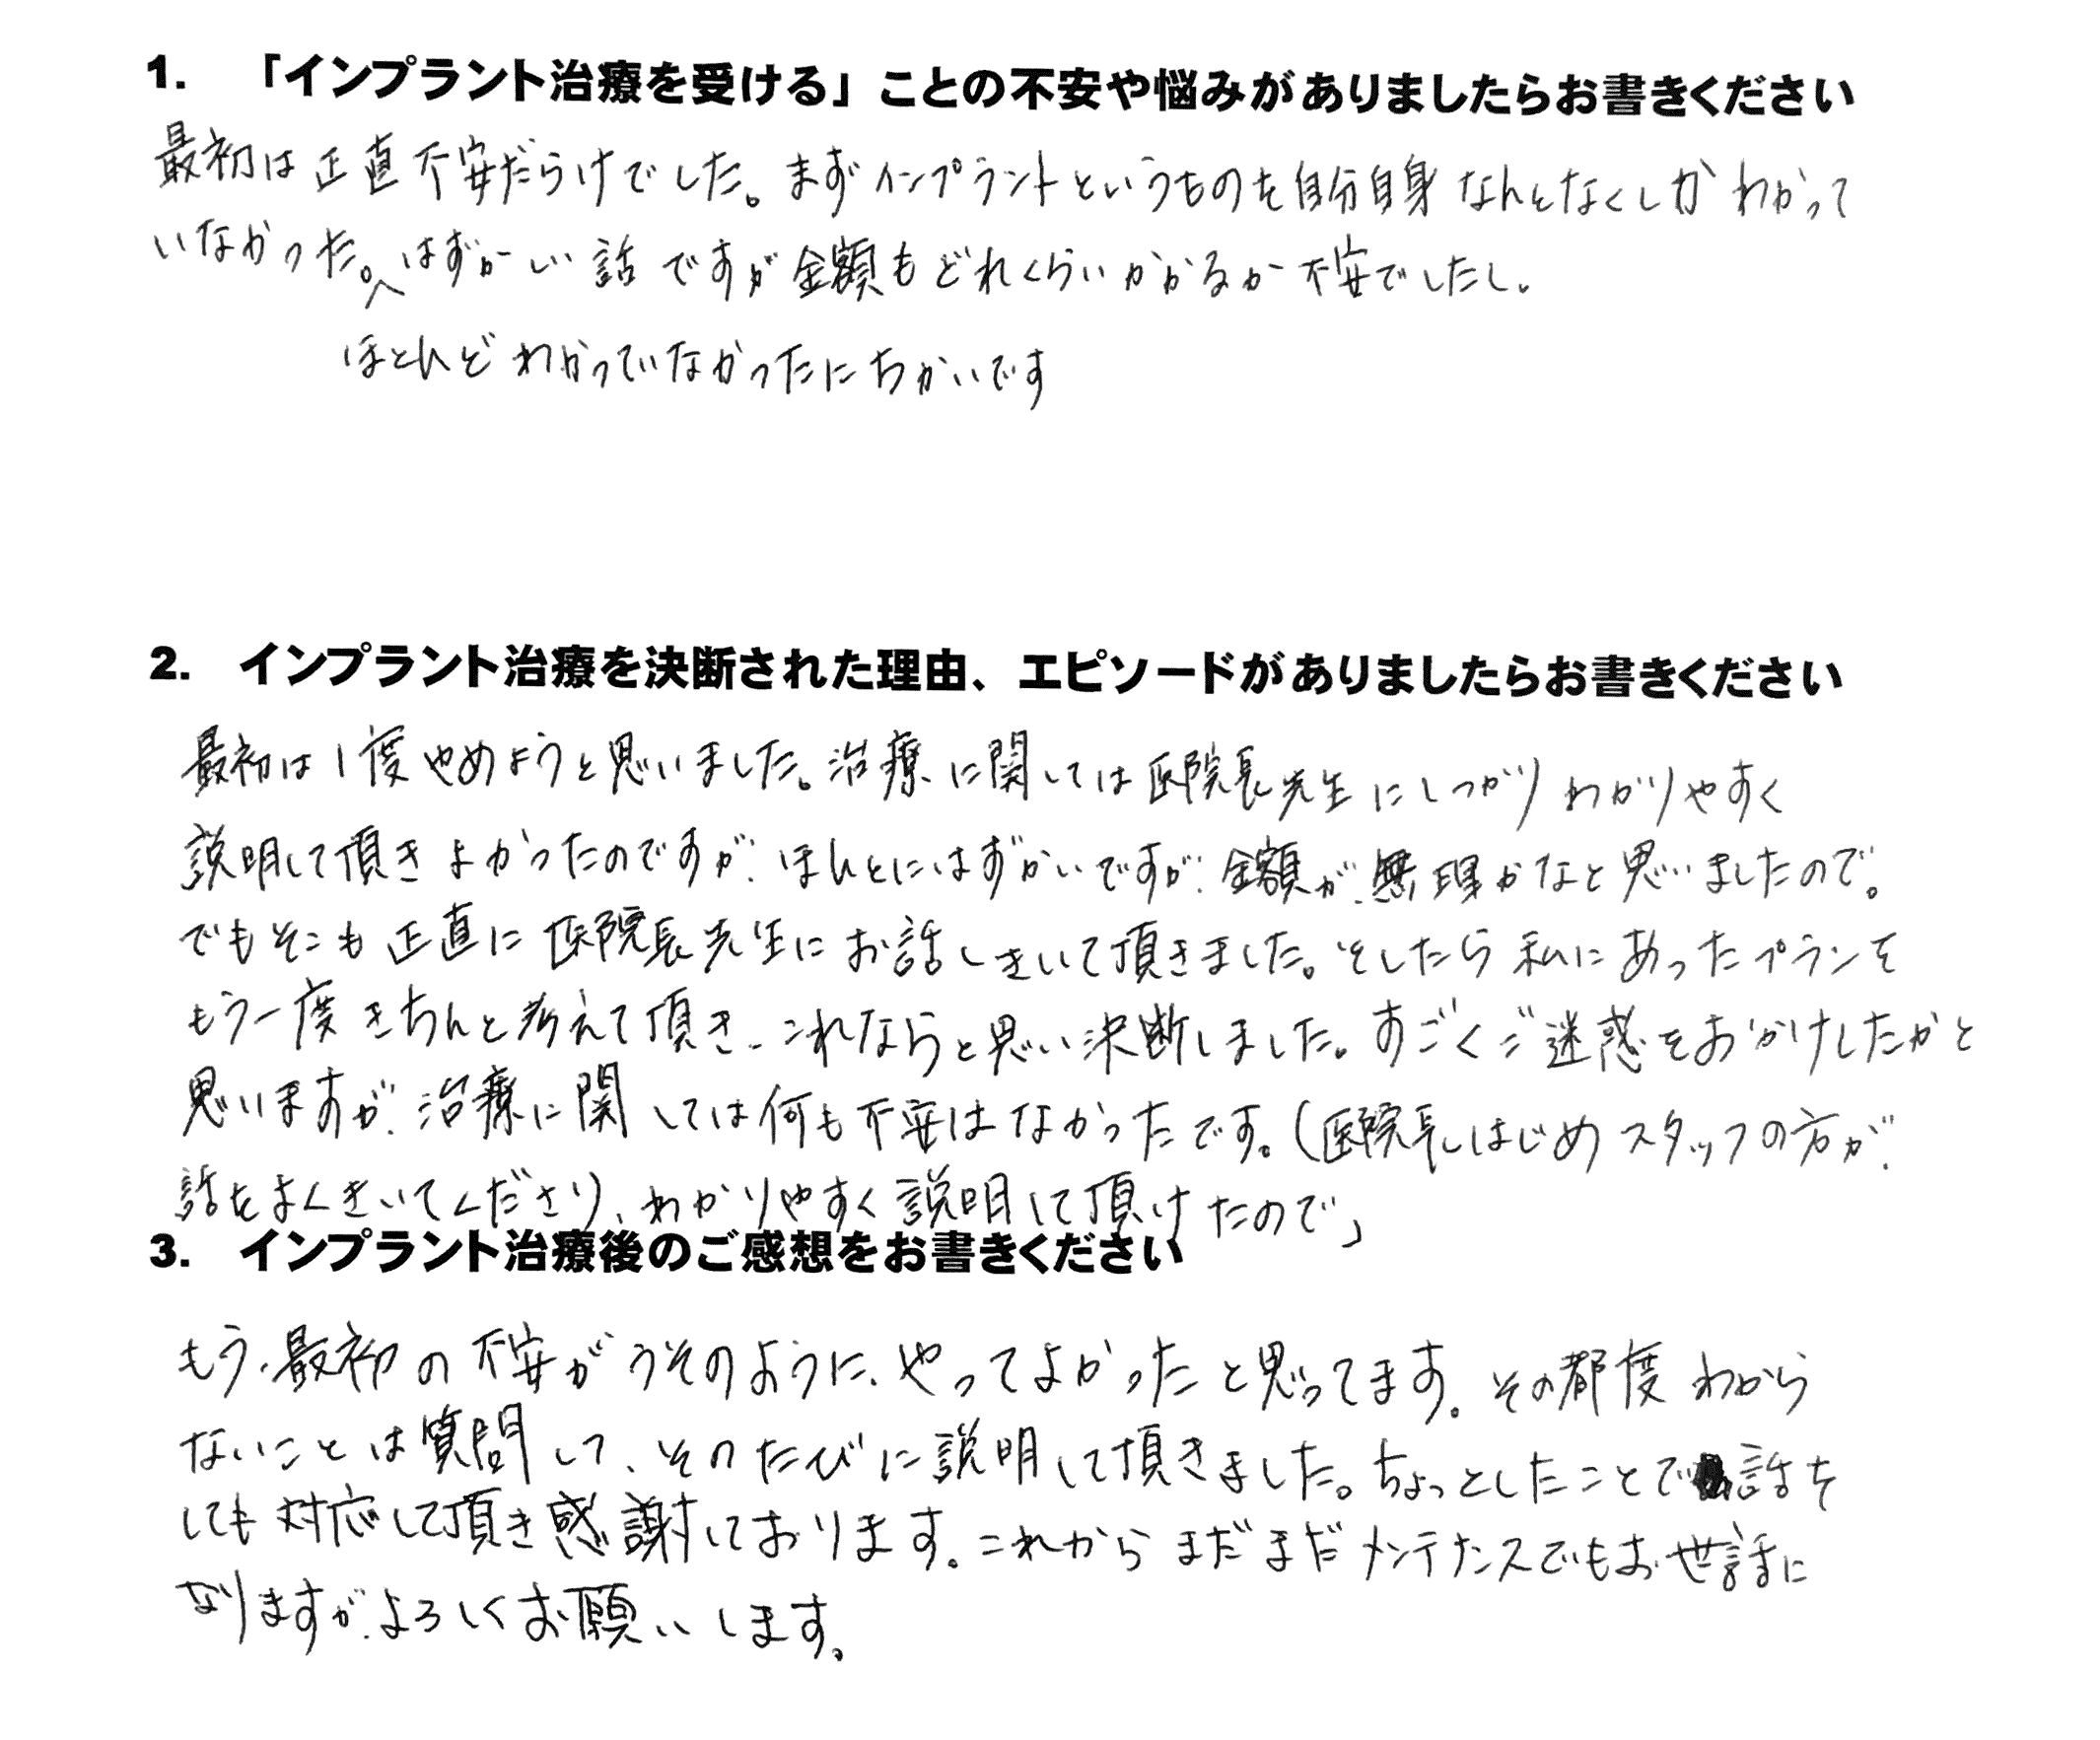 1. 「インプラント治療を受ける」ことの不安や悩みがありましたらお書きください
最初は正直不安だらけでした。まずインプラントというものを自分自身なんとなくしかわかって
いなかった。はずかしい話ですが金額もどれくらいかかるか不安でしたし。
ほとんどわかっていなかったにちかいです
2. インプラント治療を決断された理由、エピソードがありましたらお書きください
最初は1度やめようと思いました。治療に関しては医院長先生にしっかりわかりやすく
説明して頂きよかったのですが、ほんとにはずかいですが、金額が無理かなと思いましたので。
でもそこも正直に医院長先生にお話しきいて頂きました。そしたら私にあったプランを
もう一度きちんと考えて頂き、これならと思い決断しました。すごくご迷惑をおかけしたかと
思いますが、治療に関しては何も不安はなかったです。(医院長はじめスタッフの方が、
話をよくきいてくださり、わかりやすく説明して頂けたので」
3. インプラント治療後のご感想をお書きください
もう、最初の不安がうそのように、やってよかったと思ってます。その都度わから
ないことは質問して、そのたびに説明して頂きました。ちょっとしたことで話を
しても対応して頂き感謝しております。これからまだまだメンテナンスでもお世話に
なりますが、よろしくお願いします。